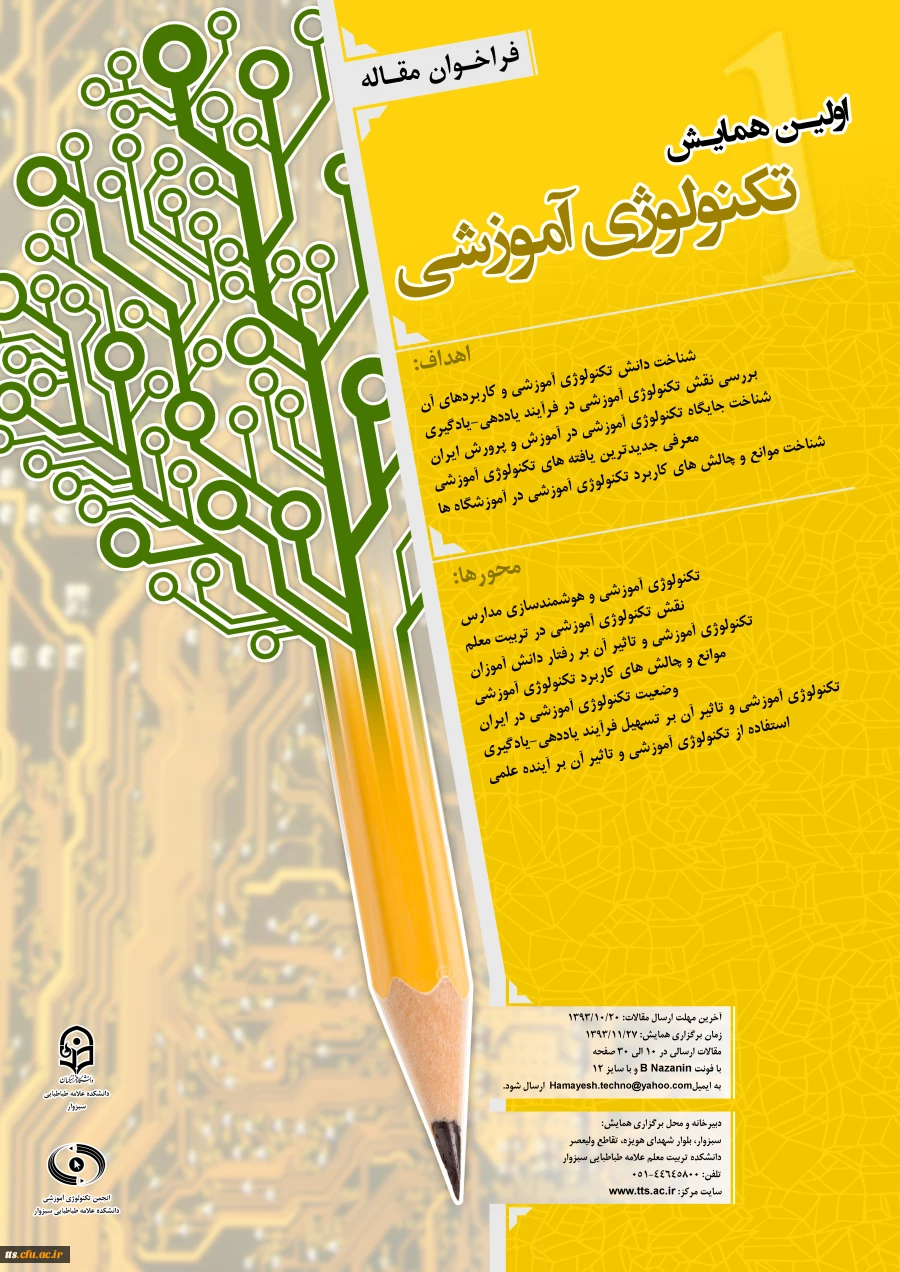 فراخوان مقاله
1
اولین همایش
تکنولوژی آموزشی
اهداف:
شناخت دانش تکنولوژی آموزشی و کاربردهای آن
بررسی نقش تکنولوژی آموزشی در فرآیند یاددهی-یادگیری
شناخت جایگاه تکنولوژی آموزشی در آموزش و پرورش ایران
معرفی جدیدترین یافته های تکنولوژی آموزشی
شناخت موانع و چالش های کاربرد تکنولوژی آموزشی در آموزشگاه ها
محورها:
تکنولوژی آموزشی و هوشمندسازی مدارس
نقش تکنولوژی آموزشی در تربیت معلم
تکنولوژی آموزشی و تاثیر آن بر رفتار دانش آموزان
موانع و چالش های کاربرد تکنولوژی آموزشی
وضعیت تکنولوژی آموزشی در ایران
تکنولوژی آموزشی و تاثیر آن بر تسهیل فرآیند یاددهی-یادگیری
استفاده از تکنولوژی آموزشی و تاثیر آن بر آینده علمی
آخرین مهلت ارسال مقالات: ۱۳۹۳/۱۰/۲۰
زمان برگزاری همایش: ۱۳۹۳/۱۱/۲۷
مقالات ارسالی در ۱۰ الی ۳۰ صفحه
با فونت B Nazanin و با سایز ۱۲
به ایمیل Hamayesh.techno@yahoo.com ارسال شود.
دبیرخانه و محل برگزاری همایش:
سبزوار، بلوار شهدای هویزه، تقاطع ولیعصر
دانشکده تربیت معلم علامه طباطبایی سبزوار
تلفن: ۴۴۶۴۵۸۰۰-۰۵۱
سایت مرکز: www.tts.ac.ir
دانشگاه فرهنگیان
دانشکده علامه طباطبایی
سبزوار
انجمن تکنولوژی آموزشی
دانشکده علامه طباطبایی سبزوار
tts.cfu.ac.ir